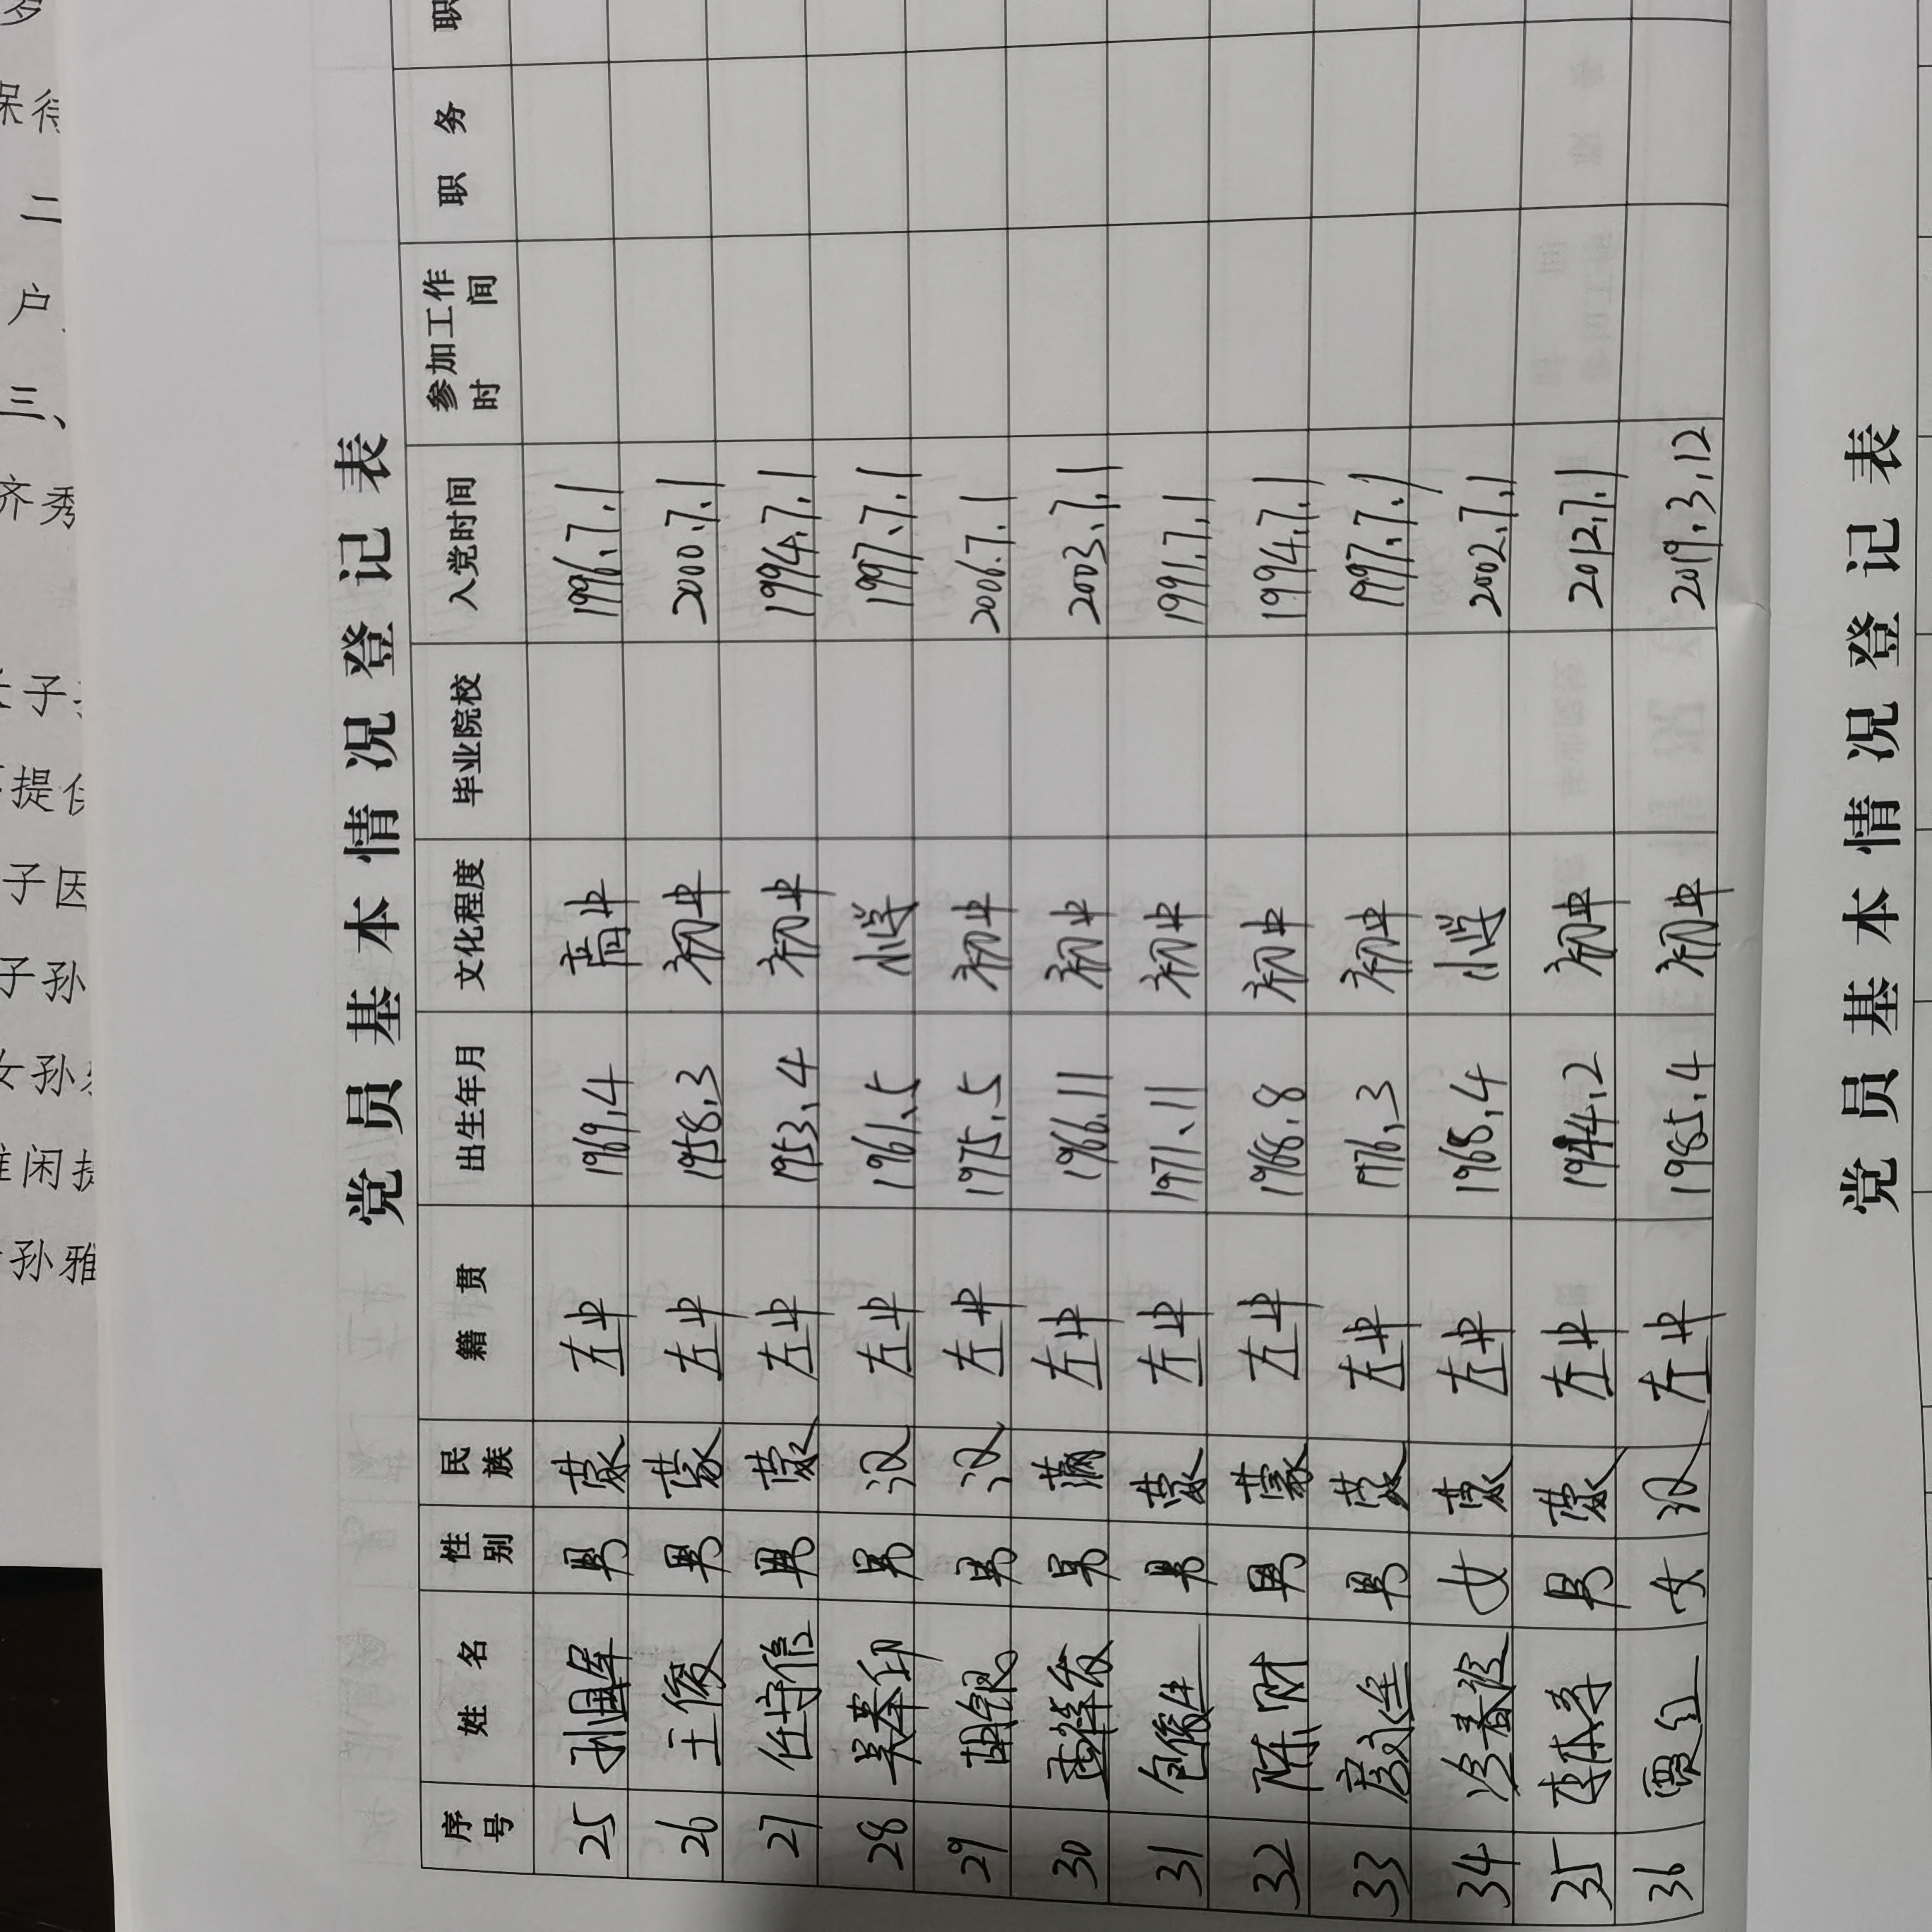 党员基本情况登记表
序号 姓名 性别 民族 籍贯 出生年月 文化程度 毕业院校 入党时间 参加工作时间 职务 职
25 孙国库 男 蒙 左中 1969.4 高中 1996.7.1
26 王俊 男 蒙 左中 1958.3 初中 2000.7.1
27 任守信 男 蒙 左中 1953.4 初中 1994.7.1
28 吴奉印 男 汉 左中 1961.5 小学 1997.7.1
29 胡银 男 汉 左中 1975.5 初中 2006.7.1
30 男 满 左中 1966.11 初中 2003.7.1
31 包俊生 男 蒙 左中 1971.11 初中 1991.7.1
32 陈财 男 蒙 左中 1968.8 初中 1994.7.1
33 男 蒙 左中 1976.3 初中 1997.7.1
34 女 蒙 左中 1968.4 小学 2002.7.1
35 男 蒙 左中 1944.2 初中 2012.7.1
36 贾红 女 汉 左中 1985.4 初中 2019.3.12
党员基本情况登记表
保待
二
户
三、
齐秀
子
提供
子因
子孙
女孙
闲
孙雅